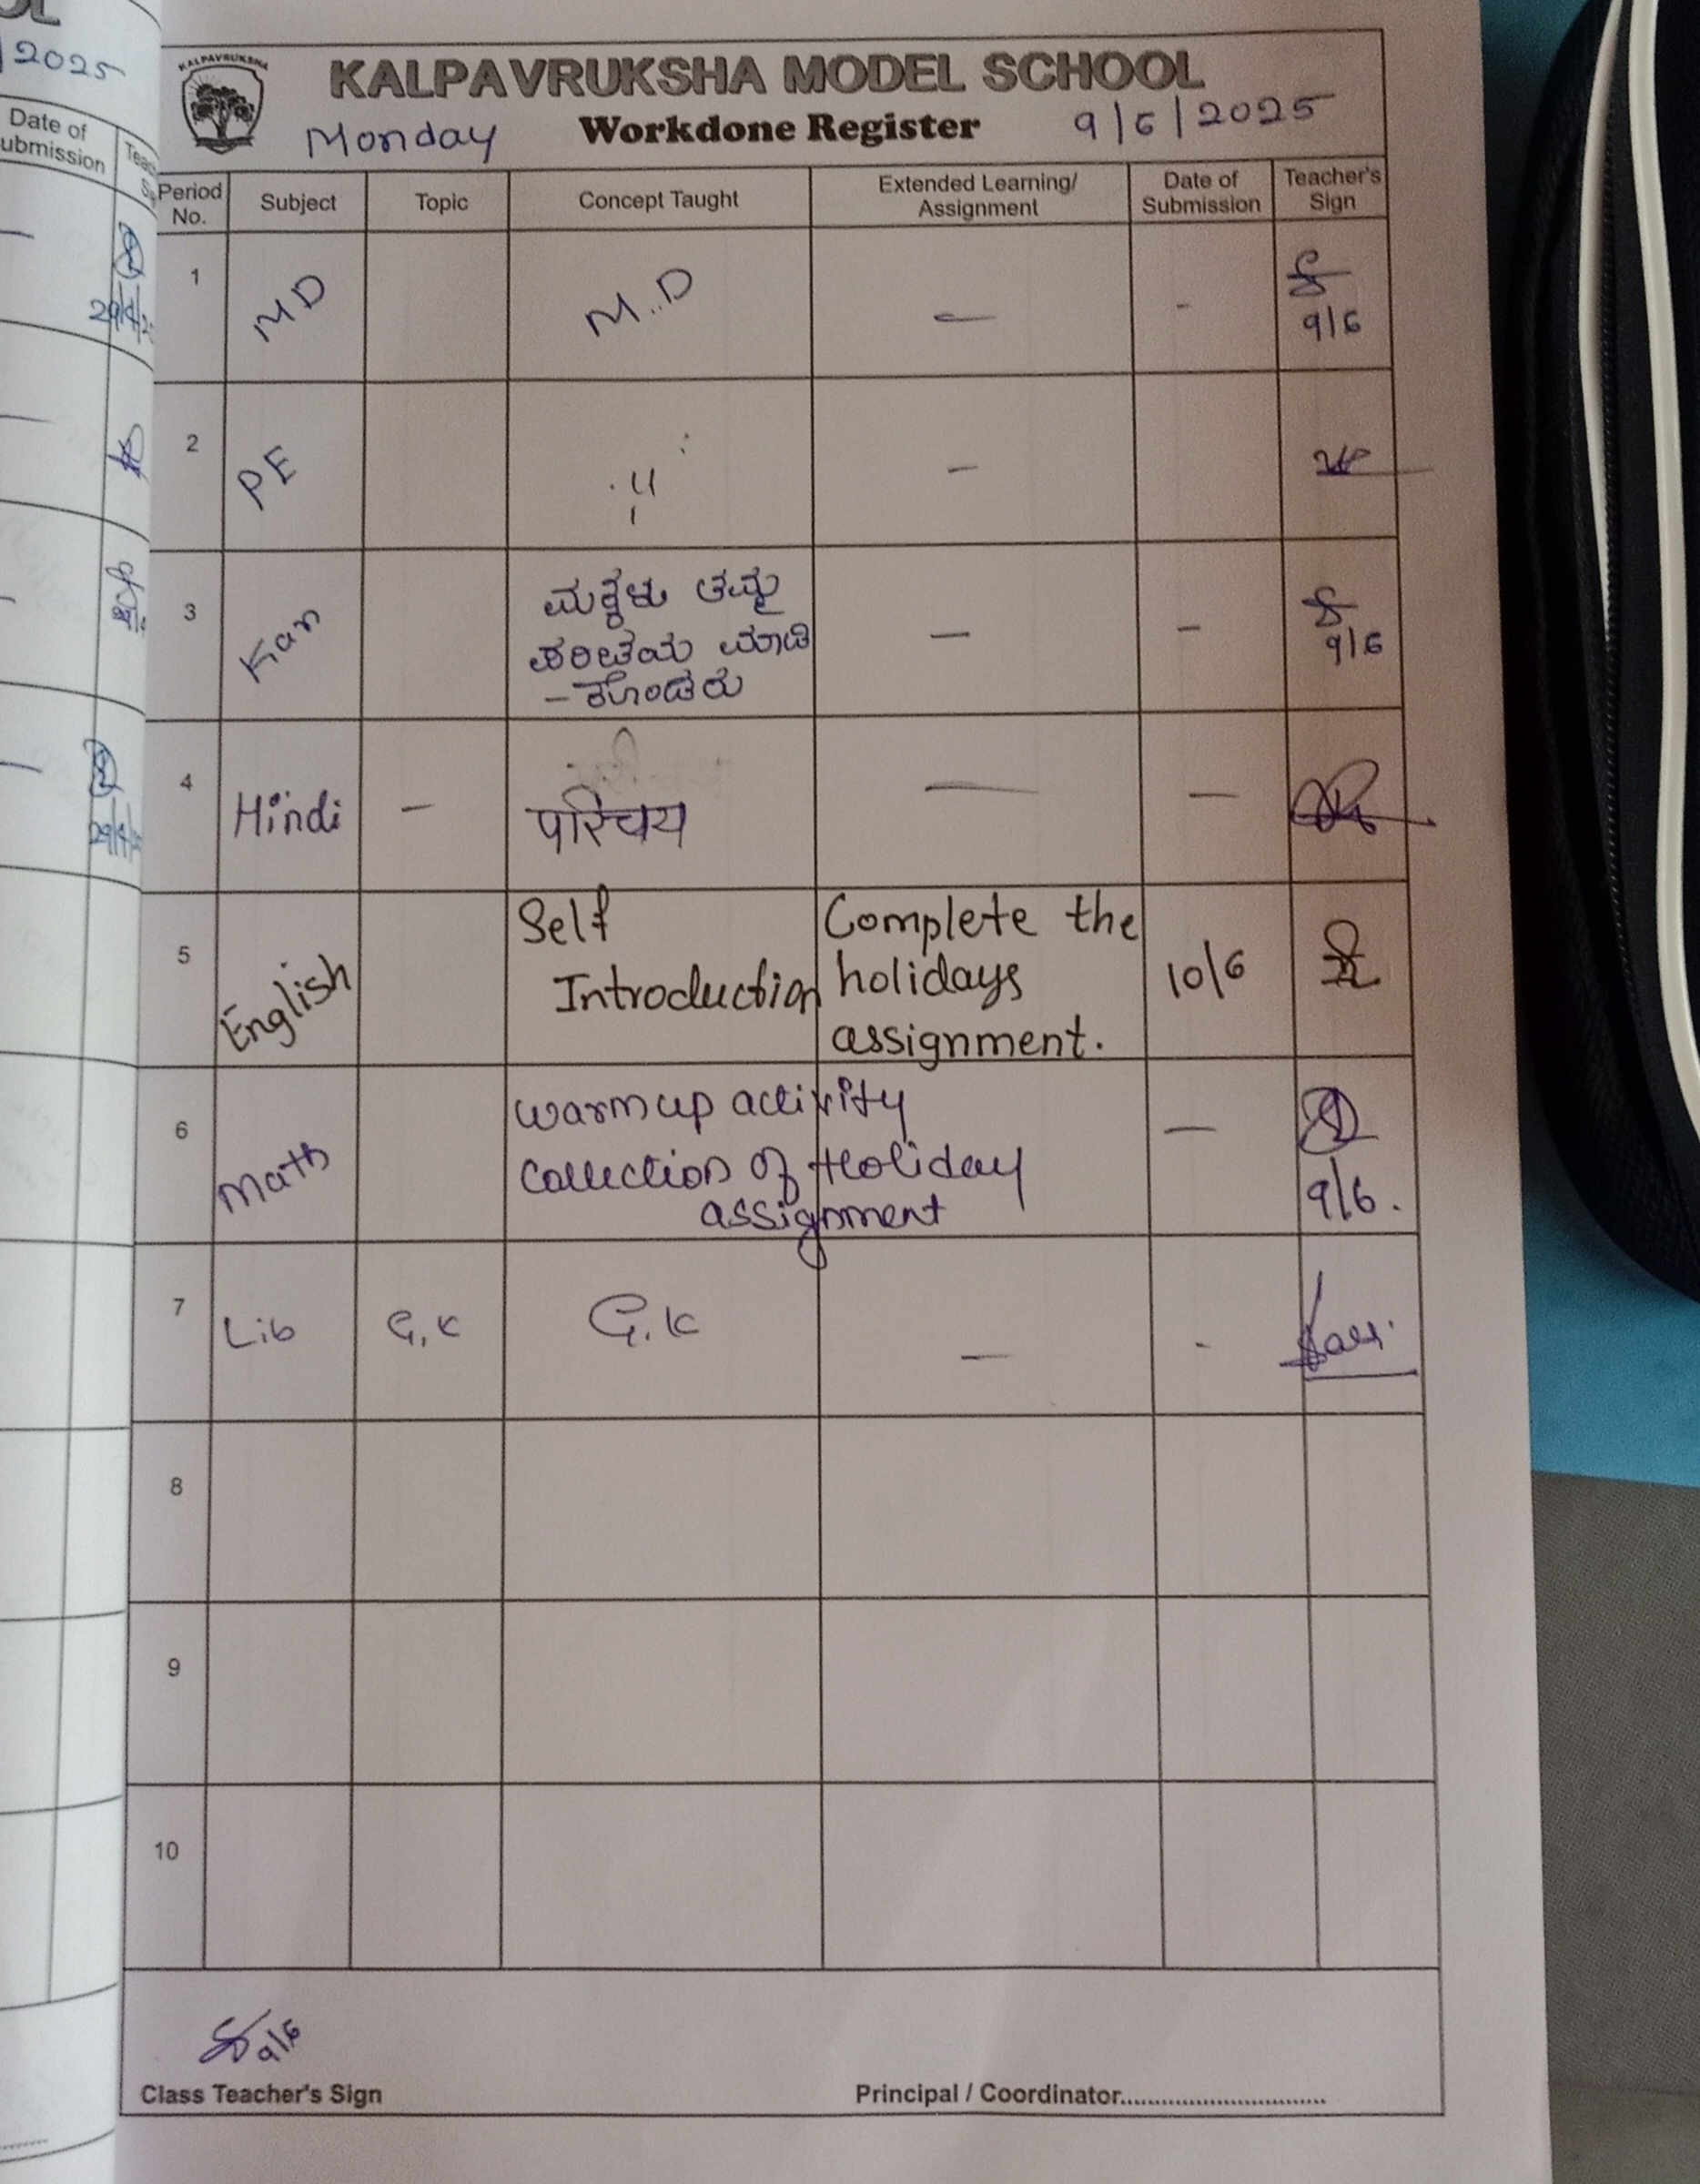 2025
Date of
ubmission
29/4/25
29/4
KALPAVRUKSHA
KALPAVRUKSHA MODEL SCHOOL
Monday Workdone Register 9/6/2025
Period No. Subject Topic Concept Taught Extended Learning/ Assignment Date of Submission Teacher's Sign
1 MD M.D — - 9/6
2 PE —
3 Kan ಮಕ್ಕಳು ತಮ್ಮ — — 9/6
ಪರಿಚಯ ಮಾಡಿ
-ಕೊಂಡರು
4 Hindi - परिचय — —
5 English Self Complete the 10/6
Introduction holidays
assignment.
6 Math warmup activity —
Collection of Holiday 9/6.
assignment
7 Lib G.K G.K — -
8
9
10
9/6
Class Teacher's Sign Principal / Coordinator..............................